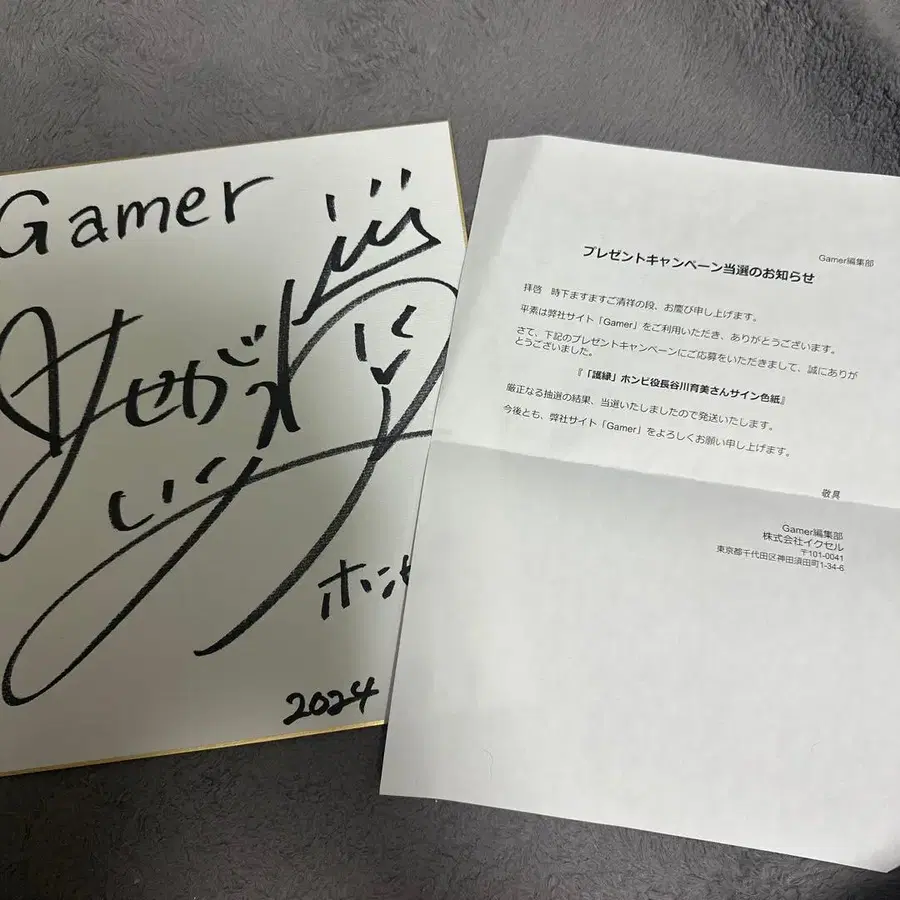 Gamer
はせがわ
いくみ
ホンビ
2024
Gamer編集部
プレゼントキャンペーン当選のお知らせ
拝啓　時下ますますご清祥の段、お慶び申し上げます。
平素は弊社サイト「Gamer」をご利用いただき、ありがとうございます。
さて、下記のプレゼントキャンペーンにご応募をいただきまして、誠にありが
とうございました。
『「護縁」ホンビ役長谷川育美さんサイン色紙』
厳正なる抽選の結果、当選いたしましたので発送いたします。
今後とも、弊社サイト「Gamer」をよろしくお願い申し上げます。
敬具
Gamer編集部
株式会社イクセル
〒101-0041
東京都千代田区神田須田町1-34-6